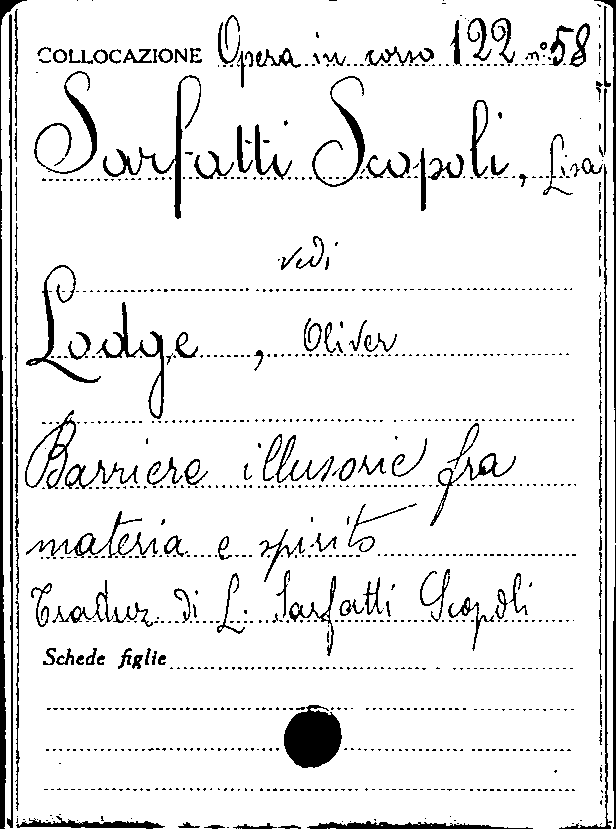 COLLOCAZIONE Opera in corso 122 n° 58
Sarfatti Scopoli, Lisa
vedi
Lodge, Oliver
Barriere illusorie fra
materia e spirito
Traduz. di L. Sarfatti Scopoli
Schede figlie